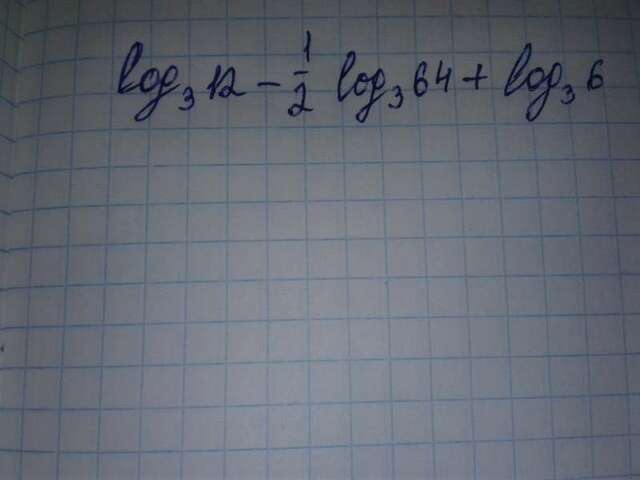 log₃12 − 1/2 log₃64 + log₃6